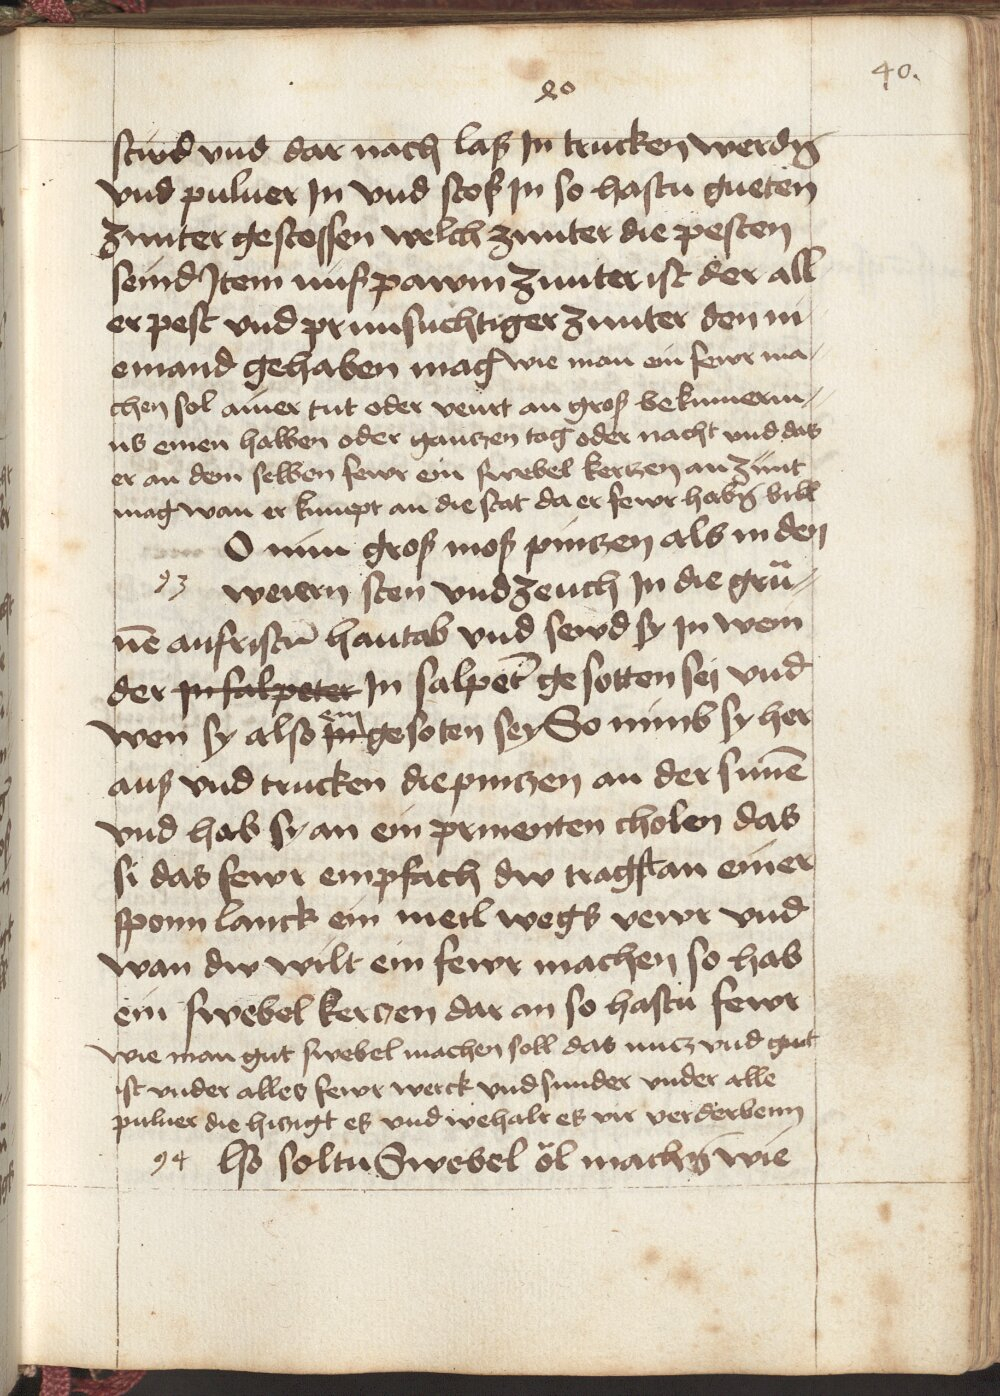 40.
20
stund vnd dar nach laß In trucken werdn
vnd puluer In vnd stoß In so hastu gueten
zunter gestossen welch zunter die pesten
seind Item nußpawm zunter ist der all
er pest vnd prinsuchtiger zunter den ni
emand gehaben mag wie man ein fewr ma/
chen sol ainer tut oder veurt an groß bekumerni//
us einen halben oder gantzen tag oder nacht vnd das
er an dem selben fewr ein swebel kertzen an zünt
mag wan er kumpt an die stat da er fewr habn will
O nim groß moß pintzen als in den
93 weiern sten vnd zeuch In die grü//
nē aufristn hautab vnd sewd sy In wein
der In salpeter In salpet gesotten sei vnd
wen sy also In ein gesoten sey So nimb sy her
auß vnd trucken die pintzen an der sunē
vnd hab sy an ein prinenten cholen das
si das fewr empfach dw tragst an einer
sponn lanck ein meil wegs verr vnd
wan dw wilt ein fewr machen so hab
ein swebel kertzen dar an so hastu fewr
wie man gut swebel machen soll das nutz vnd gut
ist vnder alles fewr werck vnd sunder vnder alle
puluer die hitzigt es vnd wehalt es vir verderbenn
94 lso soltu Swebel öl machn wie